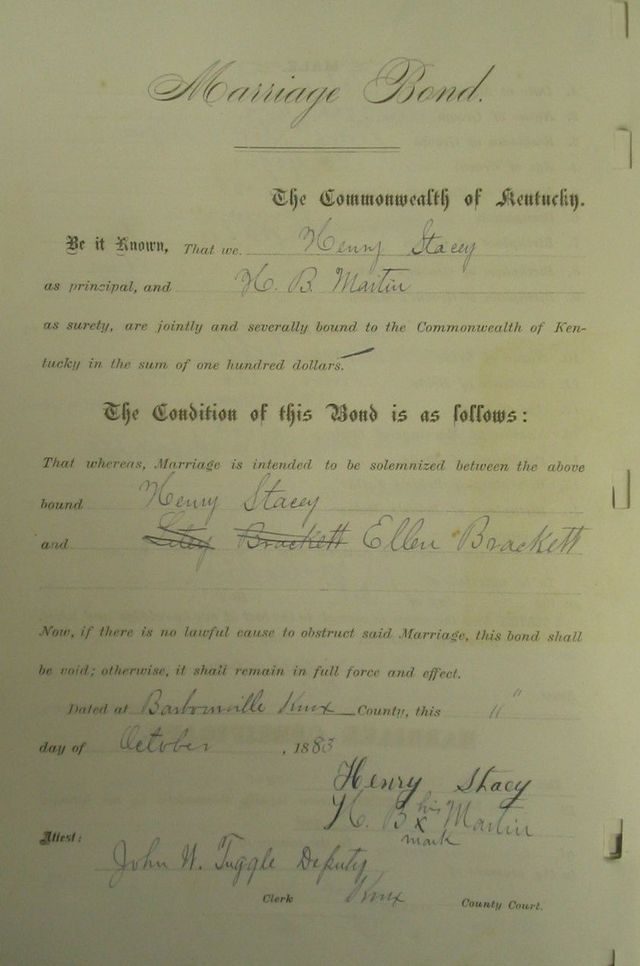 Marriage Bond.
The Commonwealth of Kentucky.
Be it Known, That we Henry Stacey
as principal, and H. B. Martin
as surety, are jointly and severally bound to the Commonwealth of Ken-
tucky in the sum of one hundred dollars.
The Condition of this Bond is as follows:
That whereas, Marriage is intended to be solemnized between the above
bound Henry Stacey
and Brackett Ellen Brackett
Now, if there is no lawful cause to obstruct said Marriage, this bond shall
be void; otherwise, it shall remain in full force and effect.
Dated at Barbourville Knox County, this 11"
day of October, 1883
Henry Stacy
H. B his x mark Martin
Attest:
John W. Tuggle Deputy
Clerk Knox County Court.